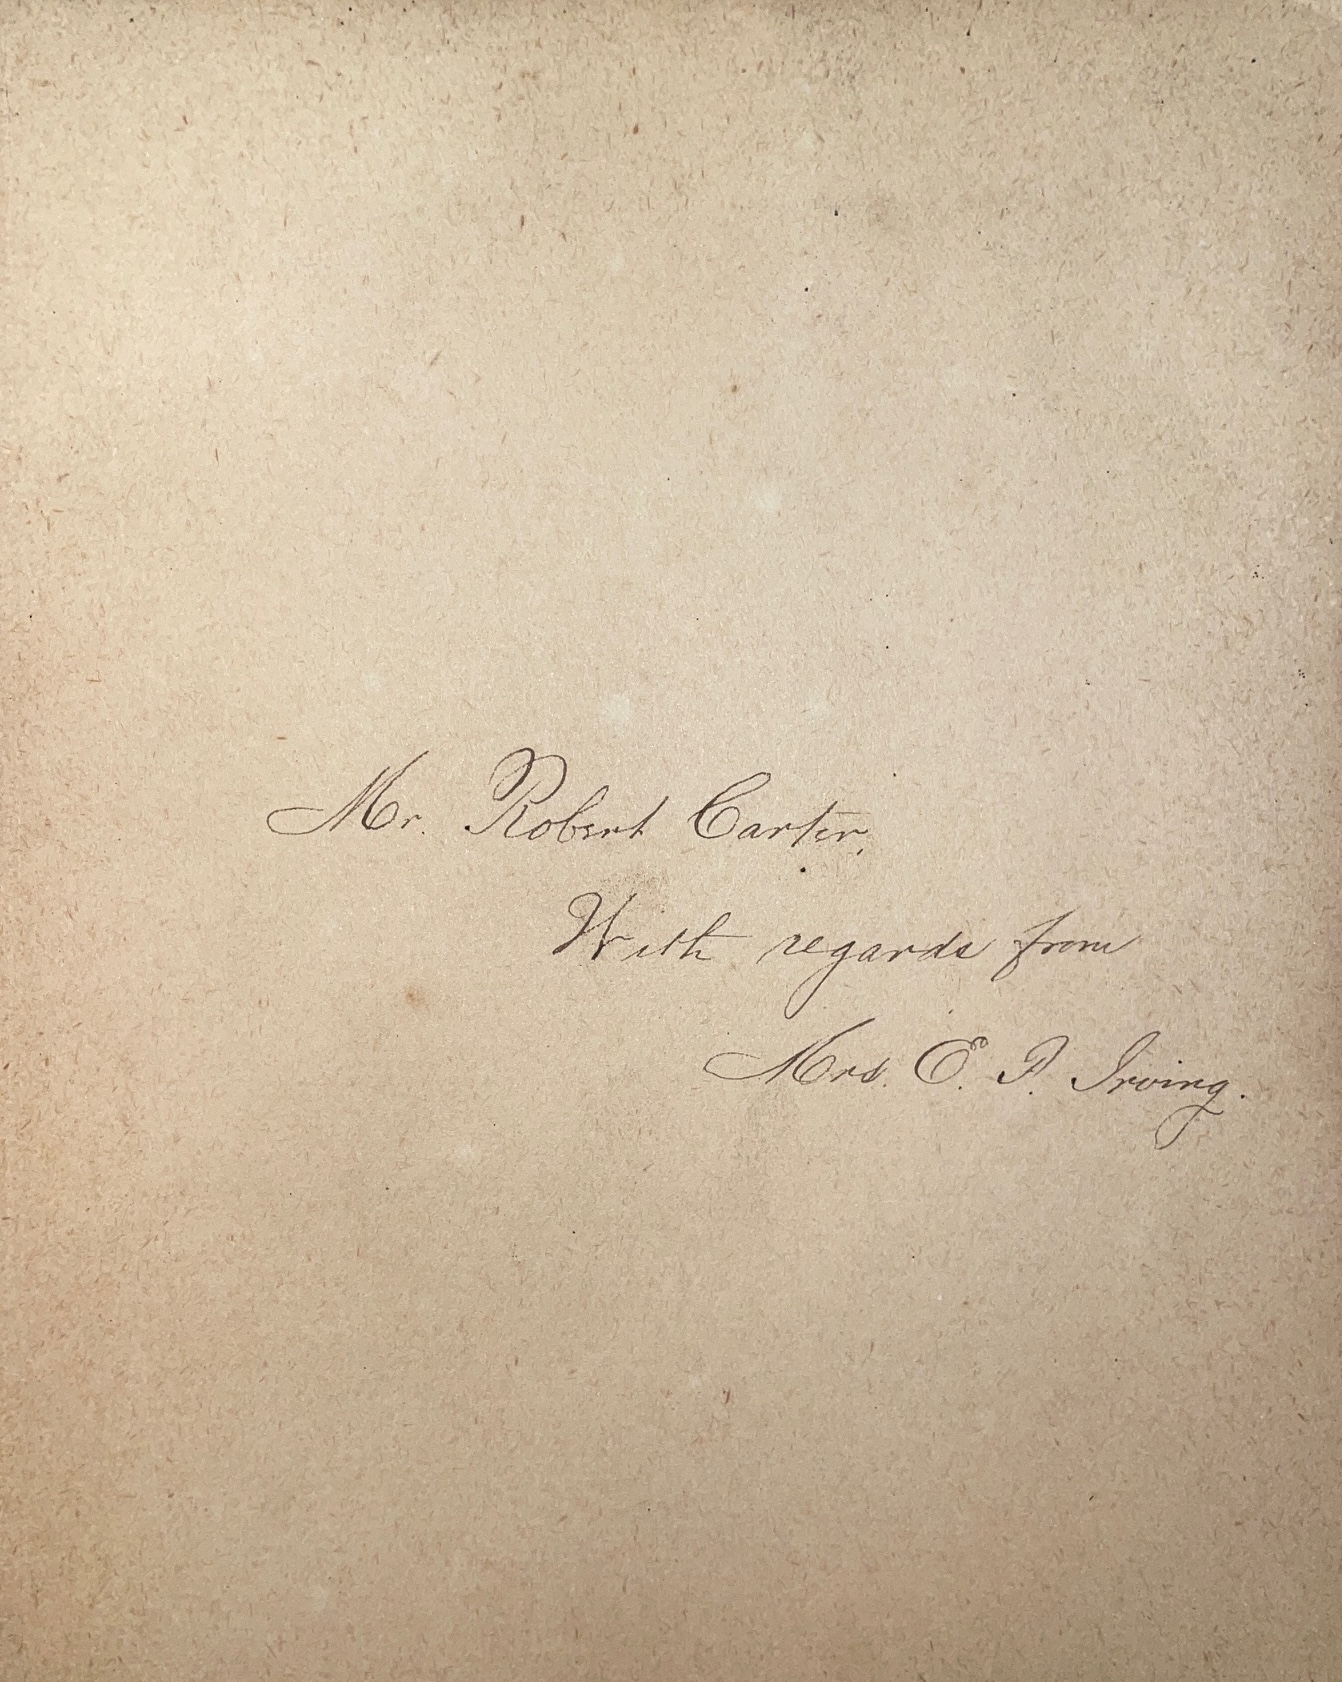 Mr. Robert Carter,
With regards from
Mrs. E. P. Irving.